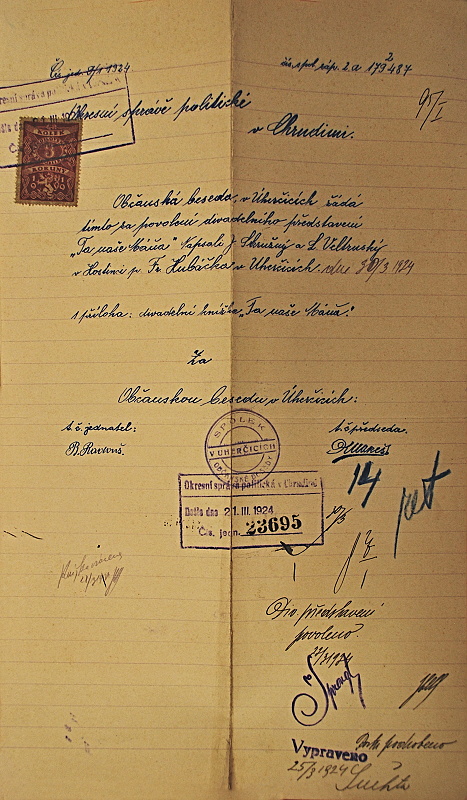 Čís. jed. 9/1 1924
čís. spol. záp. 2.a 179 487
2
Okresní správě politické
v Chrudimi.
95/I
KOLEK
5
KORUNY
Občanská beseda v Úherčicích žádá
tímto za povolení divadelního představení
„Ta naše Máňa" Napsali J. Skružný a L. Veltruský
v Hostinci p. Fr. Hubáčka v Úherčicích dne 30/3 1924
1 příloha: divadelní knížka „Ta naše Máňa".
Za
Občanskou besedu v Úherčicích:
t.č. jednatel:
t.č. předseda.
SPOLEK
V UHERČICÍCH
OBČANSKÉ BESEDY
14
Okresní správa politická v Chrudimi
Došlo dne 21. III. 1924
Čís. jedn. 23695
Div. představení
povoleno.
22/3 1924
Vypraveno
25/3 1924